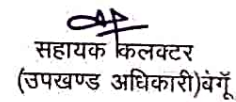 सहायक कलक्टर
(उपखण्ड अधिकारी)बेगूँ